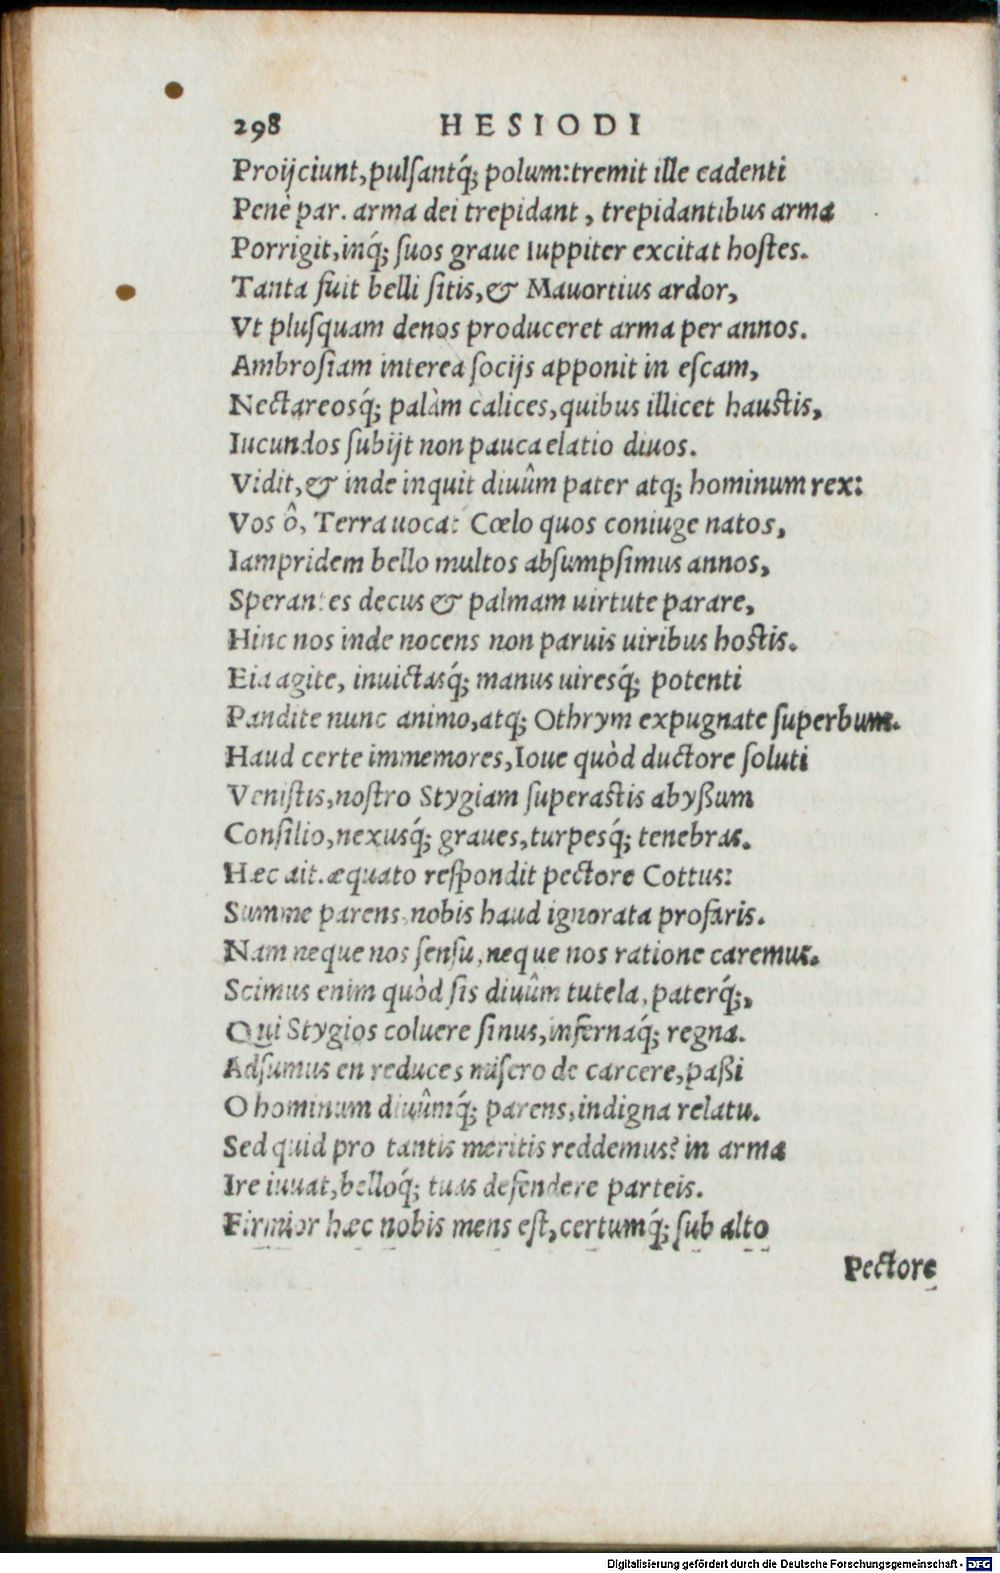 298 HESIODI
Proijciunt, pulsantq́; polum: tremit ille cadenti
Penè par. arma dei trepidant, trepidantibus arma
Porrigit, inq́; suos graue Iuppiter excitat hostes.
Tanta fuit belli sitis, & Mauortius ardor,
Vt plusquam denos produceret arma per annos.
Ambrosiam interea socijs apponit in escam,
Nectareosq́; palàm calices, quibus illicet haustis,
Iucundos subijt non pauca elatio diuos.
Vidit, & inde inquit diuûm pater atq; hominum rex:
Vos ô, Terra uocat Cœlo quos coniuge natos,
Iampridem bello multos absumpsimus annos,
Sperantes decus & palmam uirtute parare,
Hinc nos inde nocens non paruis uiribus hostis.
Eia agite, inuictasq́; manus uiresq́; potenti
Pandite nunc animo, atq; Othrym expugnate superbum.
Haud certe immemores, Ioue quòd ductore soluti
Venistis, nostro Stygiam superastis abyßum
Consilio, nexusq́; graues, turpesq́; tenebras.
Hæc ait. æquato respondit pectore Cottus:
Summe parens, nobis haud ignorata profaris.
Nam neque nos sensu, neque nos ratione caremus.
Scimus enim quòd sis diuûm tutela, paterq́;,
Qui Stygios coluere sinus, infernaq́; regna.
Adsumus en reduces misero de carcere, paßi
O hominum diuûmq́; parens, indigna relatu.
Sed quid pro tantis meritis reddemus? in arma
Ire iuuat, belloq́; tuas defendere parteis.
Firmior hæc nobis mens est, certumq́; sub alto
Pectore
Digitalisierung gefördert durch die Deutsche Forschungsgemeinschaft - DFG